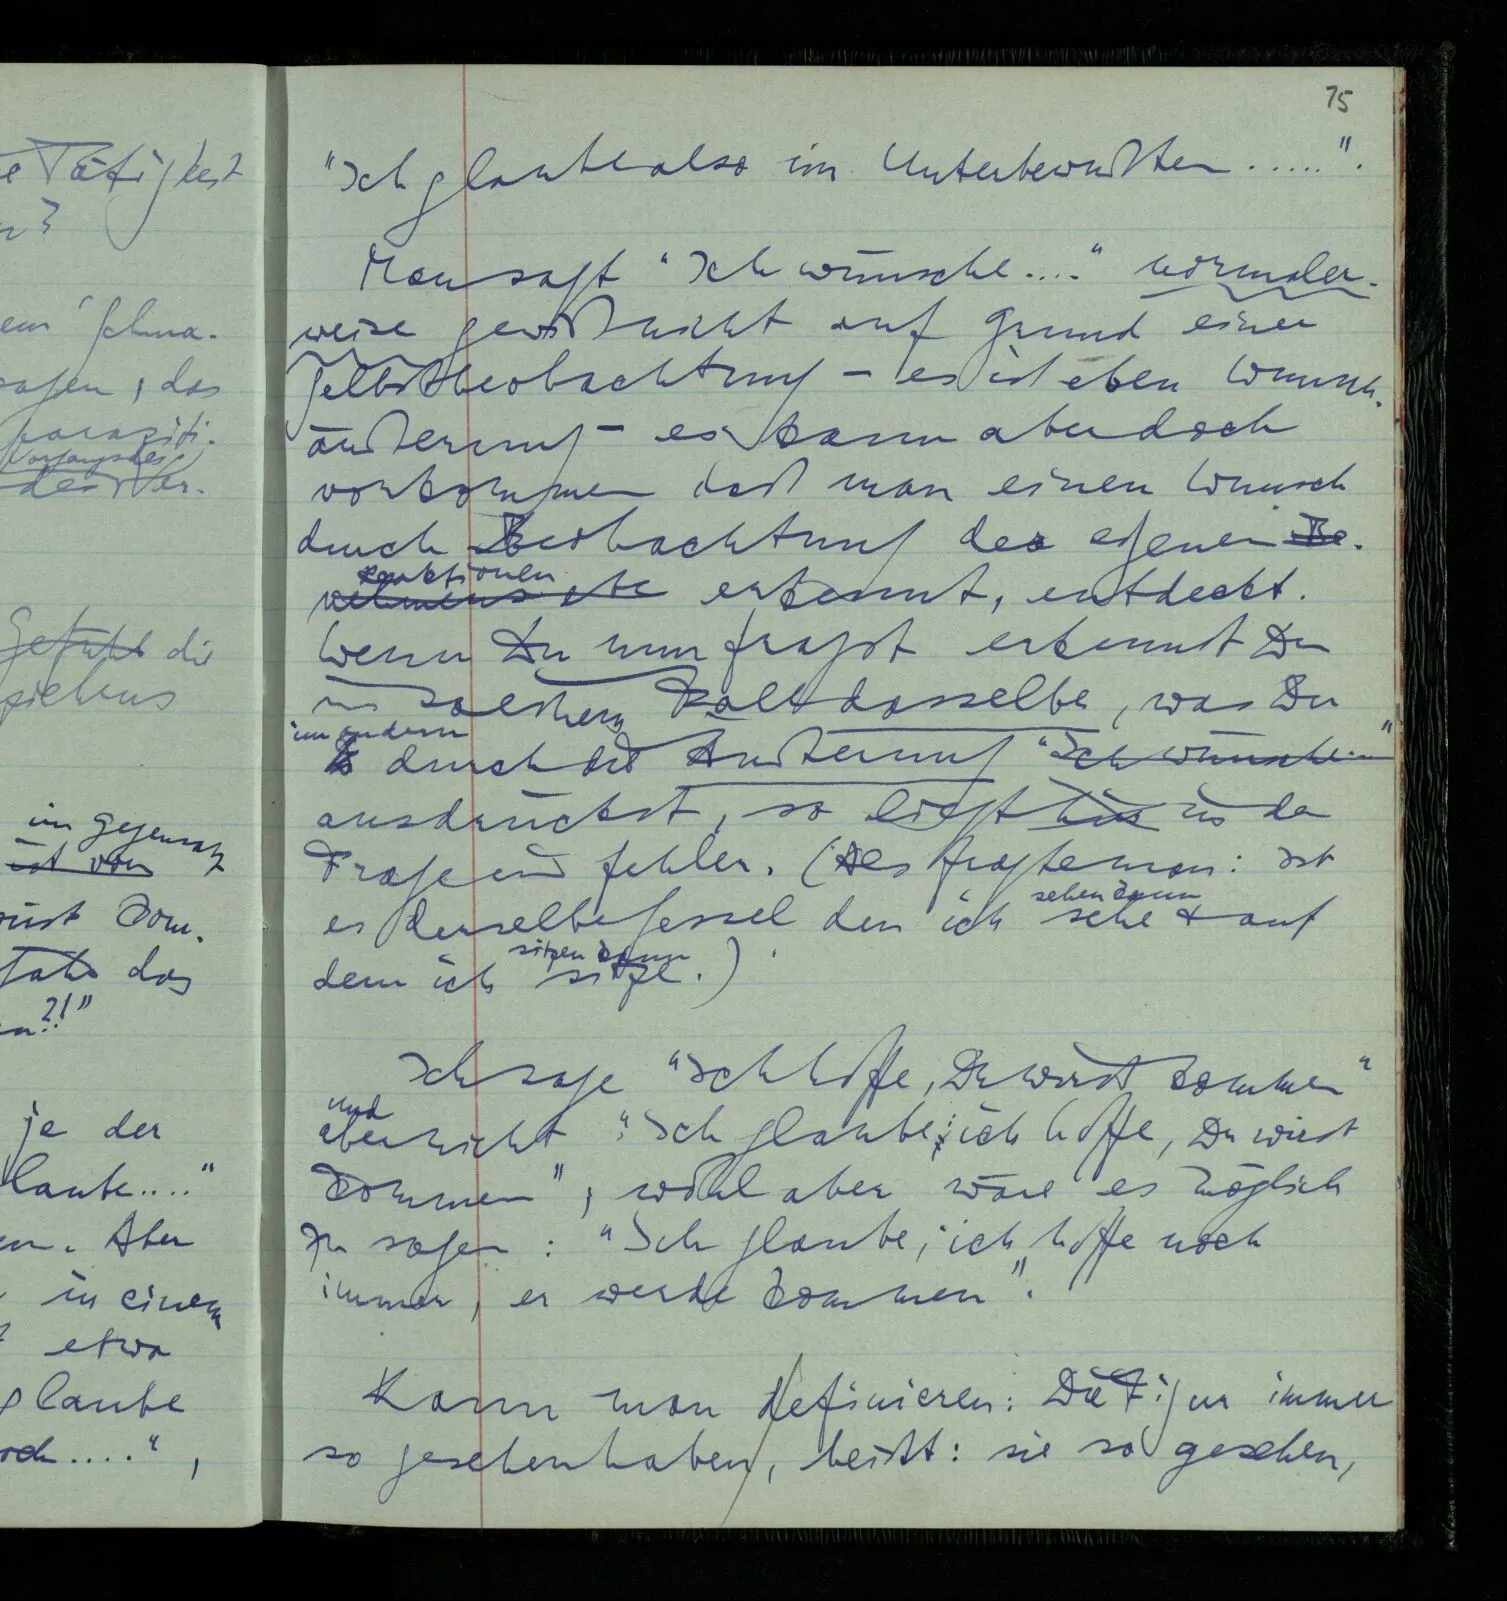 e Tätigkeit
n?
ein 'Schma-
sagen, das
paraziti-
Vorganges
des Ver-
Gefühl die
ziehens
im Gegensatz
ist von
das
n?!"
je der
laube...."
en. Aber
in einem
etwa
glaube
och....",
75
"Ich glaube also im Unterbewußten.....".
Man sagt "Ich wünsche...." normaler-
weise gewiß nicht auf Grund einer
Selbstbeobachtung – es ist eben Wunsch-
äußerung – es kann aber doch
vorkommen daß man einen Wunsch
durch Beobachtung der eigenen Be-
Reaktionen
nehmens etc erkennt, entdeckt.
Wenn Du nun fragst erkennst Du
in solchem Fall dasselbe, was Du
im andern
durch die Äußerung "Ich wünsche..."
ausdrückst, so liegt hier in der
Frage ein Fehler. (Als fragte man: Ist
sehen kann
es derselbe Sessel den ich sehe & auf
sitzen kann
dem ich sitze.)
Ich sage "Ich hoffe, Du wirst kommen"
und
aber nicht "Ich glaube, ich hoffe, Du wirst
kommen", wohl aber wäre es möglich
zu sagen: "Ich glaube, ich hoffe noch
immer, er werde kommen".
Kann man definieren: Die Figur immer
so gesehen haben, heißt: sie so gesehen,